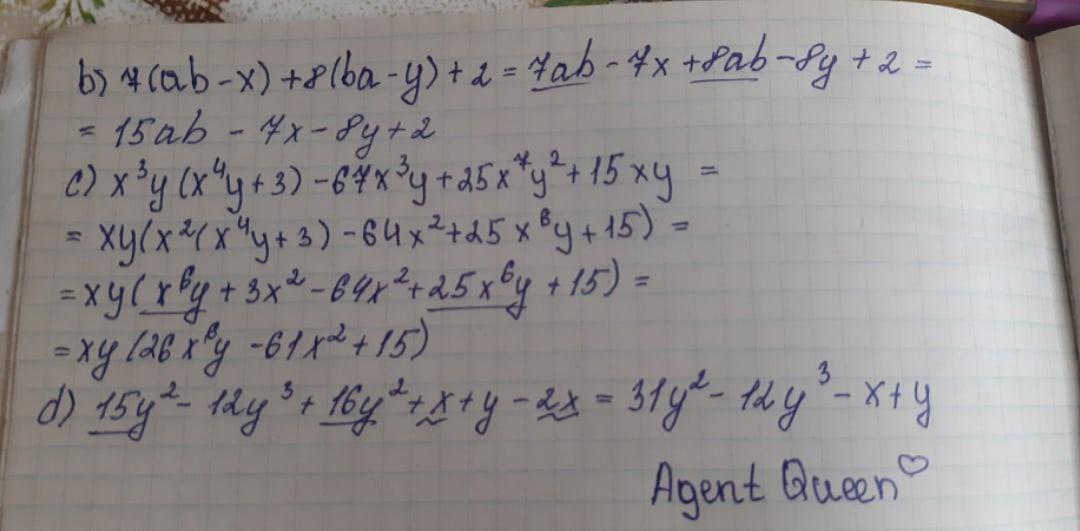 b) 7(ab-x)+8(ba-y)+2=7ab-7x+8ab-8y+2=
=15ab-7x-8y+2
c) x³y(x⁴y+3)-67x³y+25x⁷y²+15xy=
=xy(x²(x⁴y+3)-64x²+25x⁶y+15)=
=xy(x⁶y+3x²-64x²+25x⁶y+15)=
=xy(26x⁶y-61x²+15)
d) 15y²-12y³+16y²+x+y-2x=31y²-12y³-x+y
Agent Queen♡